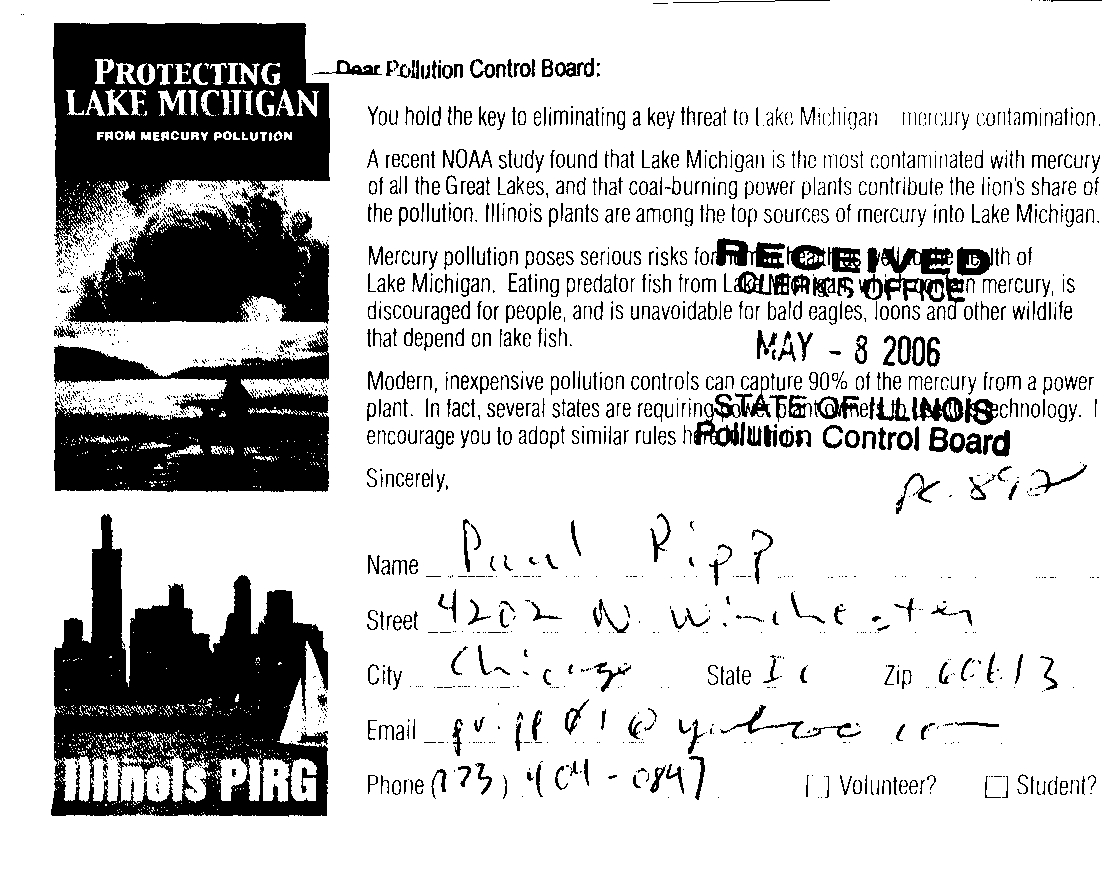 PROTECTING
LAKE MICHIGAN
FROM MERCURY POLLUTION
Illinois PIRG
Dear Pollution Control Board:
You hold the key to eliminating a key threat to Lake Michigan mercury contamination.
A recent NOAA study found that Lake Michigan is the most contaminated with mercury
of all the Great Lakes, and that coal-burning power plants contribute the lion's share of
the pollution. Illinois plants are among the top sources of mercury into Lake Michigan.
Mercury pollution poses serious risks for human health as well as the health of
Lake Michigan. Eating predator fish from Lake Michigan, which contain mercury, is
discouraged for people, and is unavoidable for bald eagles, loons and other wildlife
that depend on lake fish.
Modern, inexpensive pollution controls can capture 90% of the mercury from a power
plant. In fact, several states are requiring power plant owners to use this technology. I
encourage you to adopt similar rules here.
RECEIVED
CLERK'S OFFICE
MAY - 8 2006
STATE OF ILLINOIS
Pollution Control Board
Sincerely,
PC. 892
Name Paul Ripp
Street 4202 N Winchester
City Chicago State IL Zip 60613
Email @yahoo com
Phone (773) 404-0847 Volunteer? Student?